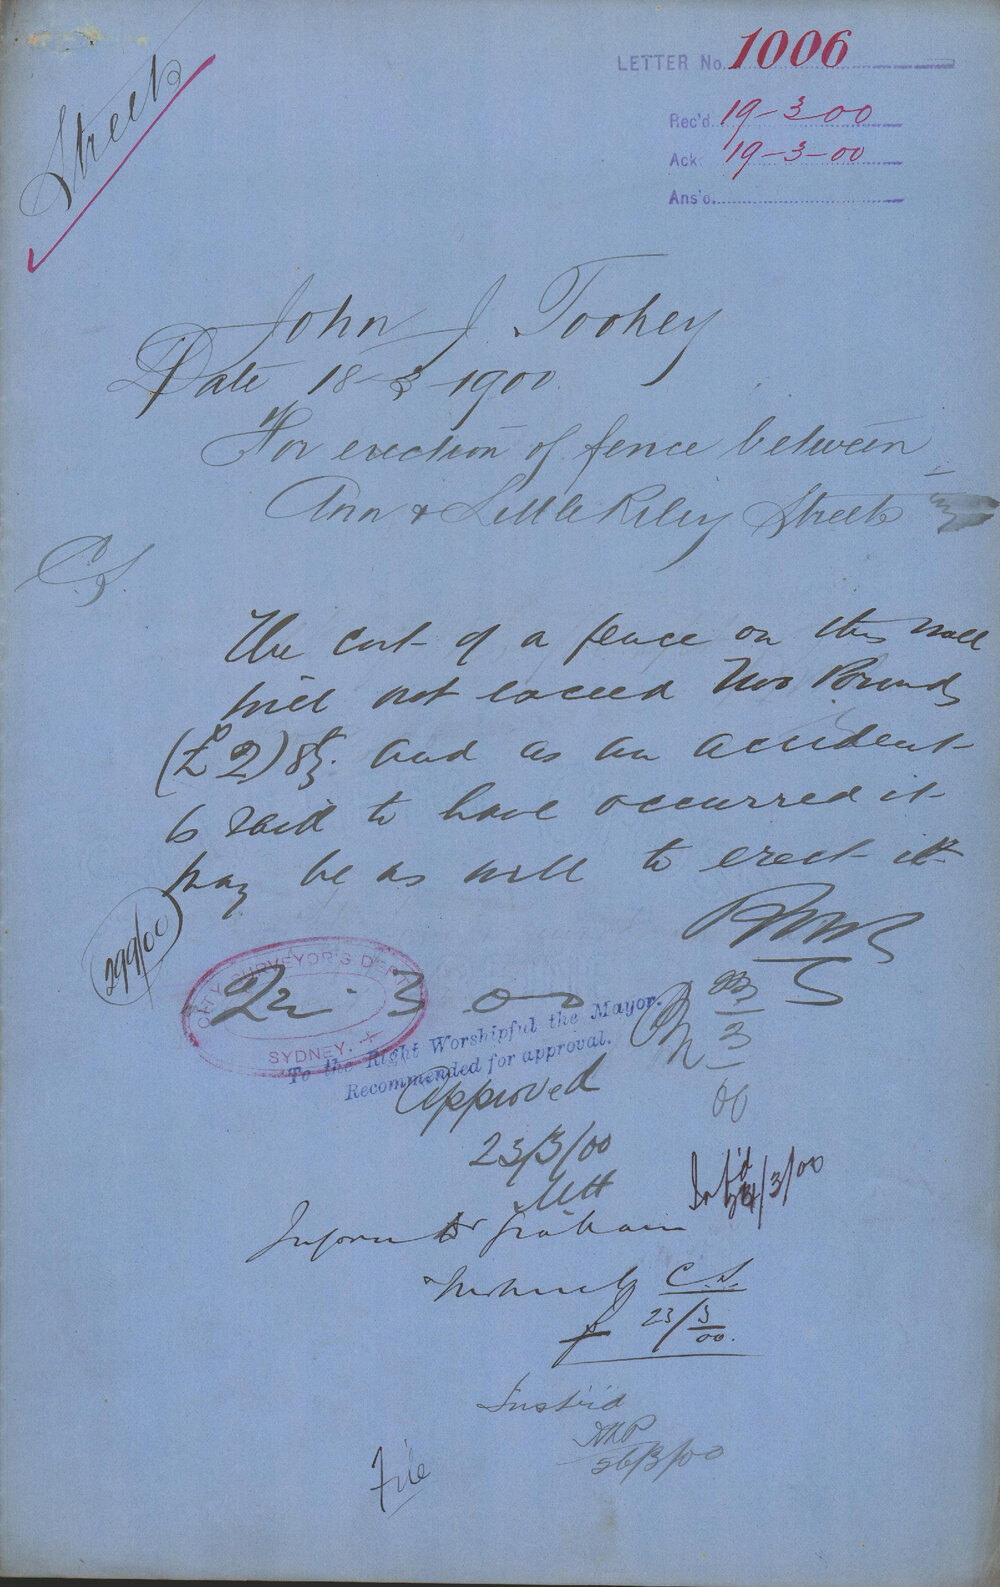 Streets
LETTER No. 1006
Rec'd. 19-3-00
Ack. 19-3-00
Ans'd.
John J Toohey
Date 18-3-1900
For erection of fence between
Ann & Little Riley Streets
CS
The cost of a fence on this wall
will not exceed Two Pounds
(£2) and as an accident
is said to have occurred it
may be as well to erect it
299/00
CITY SURVEYOR'S DEPT
SYDNEY.
22-3-00
To the Right Worshipful the Mayor.
Recommended for approval.
23/3/00
Approved
23/3/00
Inf'd 24/3/00
Inform Dr Graham
Instruct C.S.
23/3/00.
Instr'd
26/3/00
File